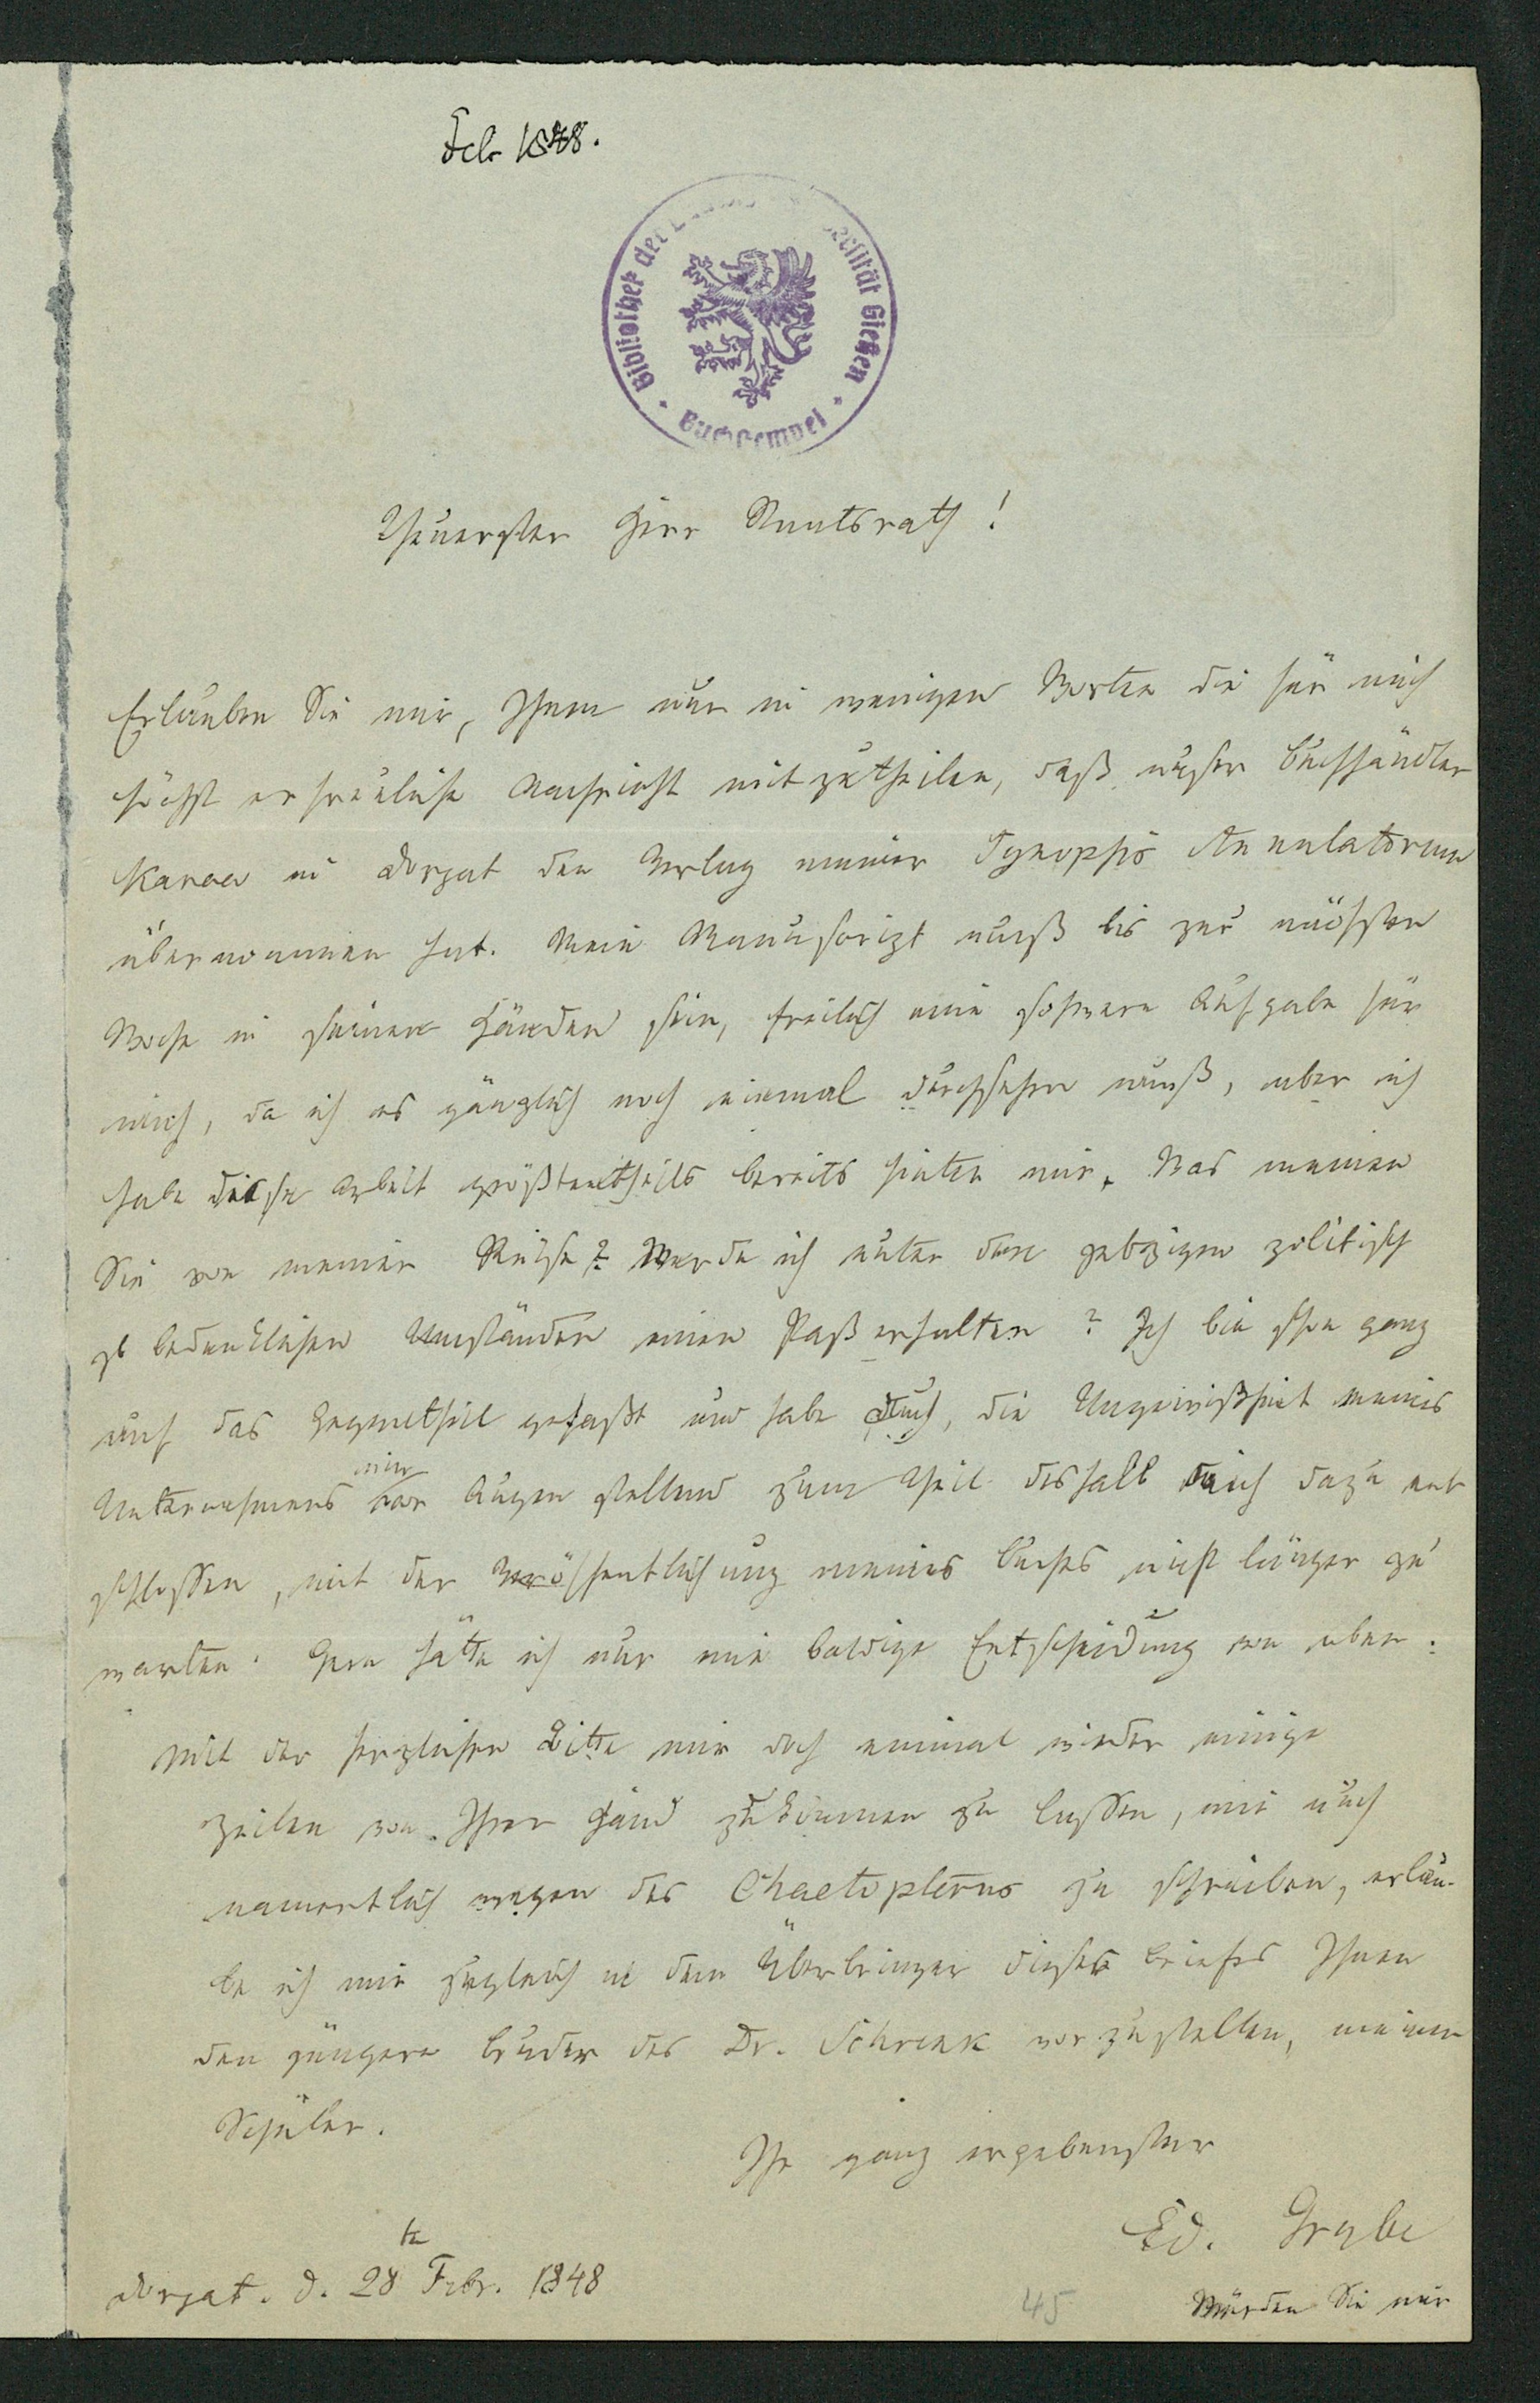 Feb 1848.
Bibliothek der Universität Gießen
Buchstempel
Theuerster Herr Staatsrath!
Erlauben Sie mir, Ihnen nur in wenigen Worten die für mich
höchst erfreuliche Nachricht mitzutheilen, daß unser Buchhändler
Karow in Dorpat den Verlag meiner Synopsis Annulatorum
übernommen hat. Mein Manuscript muß bis zur nächsten
Woche in seinen Händen sein, freilich eine schwere Aufgabe für
mich, da ich es gänzlich noch einmal durchsehen muß, aber ich
habe diese Arbeit größtentheils bereits hinter mir. Was meinen
Sie von meiner Reise? Werde ich unter den jetzigen politisch
so bedenklichen Umständen einen Paß erhalten? Ich bin schon ganz
auf das Gegentheil gefaßt und habe auch, die Ungewißheit meines
Unternehmens mir vor Augen stellend zum Theil deshalb mich dazu ent
schlossen, mit der Veröffentlichung meines Buches nicht länger zu
warten. Gern hätte ich nur eine baldige Entscheidung von oben.
Mit der herzlichen Bitte mir doch einmal wieder einige
Zeilen von Ihrer Hand zukommen zu lassen, mir auch
namentlich wegen des Chaetopterus zu schreiben, erlau-
be ich mir zugleich in dem Überbringer dieses Briefes Ihnen
den jüngern Bruder des Dr. Schrenk vorzustellen, meinen
Schüler.
Ihr ganz ergebenster
Ed. Grube
Dorpat. d. 28 ten Febr. 1848
45
Würden Sie mir